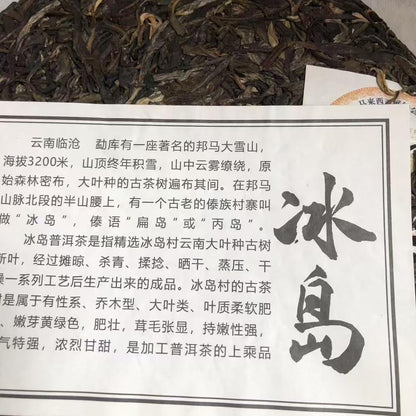 马来西
云南临沧 勐库有一座著名的邦马大雪山，
海拔3200米，山顶终年积雪，山中云雾缭绕，原
始森林密布，大叶种的古茶树遍布其间。在邦马
山脉北段的半山腰上，有一个古老的傣族村寨叫
做“冰岛”，傣语“扁岛”或“丙岛”。
冰岛普洱茶是指精选冰岛村云南大叶种古树
新叶，经过摊晾、杀青、揉捻、晒干、蒸压、干
燥一系列工艺后生产出来的成品。冰岛村的古茶
树是属于有性系、乔木型、大叶类、叶质柔软肥
、嫩芽黄绿色，肥壮，茸毛张显，持嫩性强，
气特强，浓烈甘甜，是加工普洱茶的上乘品
冰岛